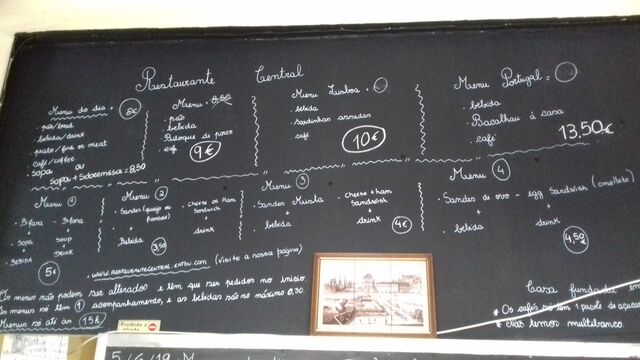 Restaurante Central
Menu do dia = 8€
. pão/bread
. bebidas/drink
. prato/fish or meat
. café/coffee
. sopa ou
sopa + sobremesa = 8,50
Menu = 8,50
. pão
. bebida
. café
9€
Menu Lisboa =
. bebida
. sardinhas assadas
. café
10€
Menu Portugal =
. bebida
. Bacalhau à casa
. café
13,50€
Menu 1
. Bifana - Bifana
+ +
. Sopa Soup
+ +
. BEBIDA DRINK
5€
Menu 2
. Sandes (queijo ou fiambre) Cheese or Ham Sandwich
+ +
. Bebida drink
3,50
Menu 3
. Sandes Mista cheese + ham sandwish
+ +
. bebida drink
4€
Menu 4
. Sandes de ovo - egg Sandwish (omellete)
+ +
. bebida drink
4,50€
. www.restaurantecentral.eatbu.com (visite a nossa página)
Os menus não podem ser alterados e têm que ser pedidos no início
Os menus só têm 1 acompanhamento, e as bebidas são no máximo 0,30.
Menus só até às 15h
Proibida a
Casa fundada em
* Os cafés só têm 1 pacote de açúcar
* Não temos multibanco.
5/6/19